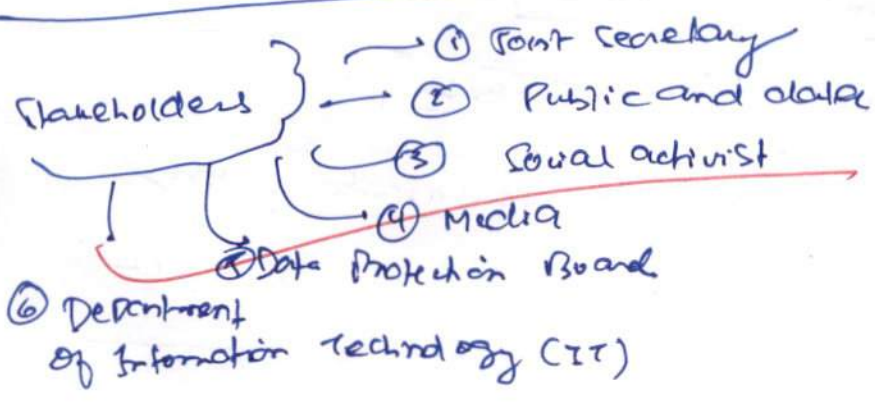 Stakeholders
① Joint Secretary
② Public and data
③ Social activist
④ Media
⑤ Data Protection Board
⑥ Department
of Information Technology (IT)